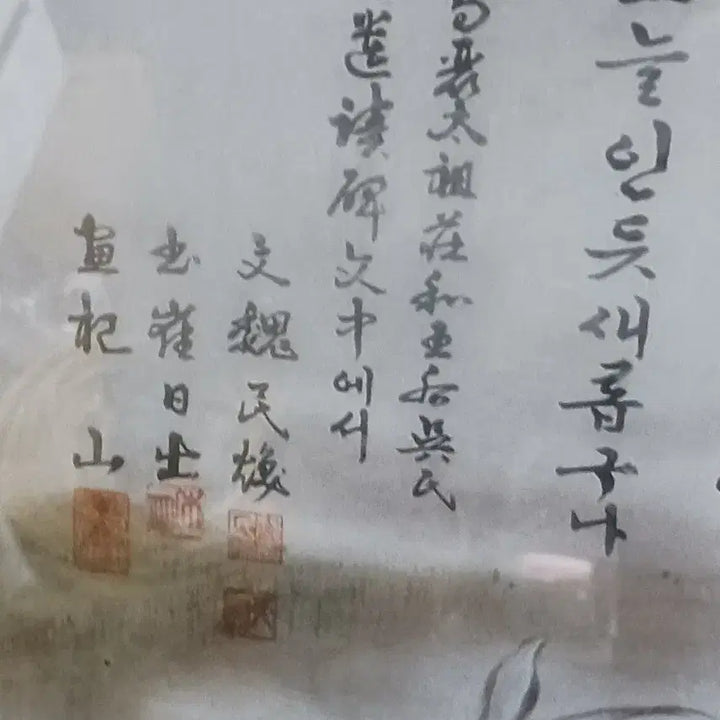 늘인듯 새롭구나
高麗太祖莊和王后吳氏
遺蹟碑文中에서
文 魏民煥
書 崔日出
畫 杞山